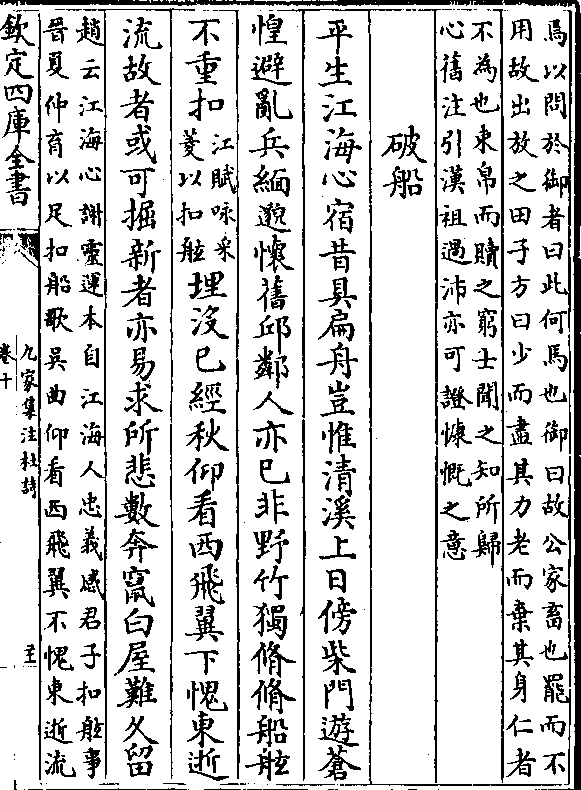 馬以問於御者曰此何馬也御曰故公家畜也罷而不
用故出放之田子方曰少而盡其力老而棄其身仁者
不為也束帛而贖之窮士聞之知所歸
心舊注引漢祖過沛亦可證慷慨之意
破船
平生江海心宿昔具扁舟豈惟清溪上日傍柴門遊蒼
惶避亂兵緬邈懷舊邱鄰人亦已非野竹獨脩脩船舷
不重扣江賦咏采菱以扣舷埋沒已經秋仰看西飛翼下愧東逝
流故者或可掘新者亦易求所悲數奔竄白屋難久留
趙云江海心謝靈運本自江海人忠義感君子扣舷事
晉夏仲育以足扣船歌吳曲仰看西飛翼不愧東逝流
欽定四庫全書
九家集注杜詩
卷十